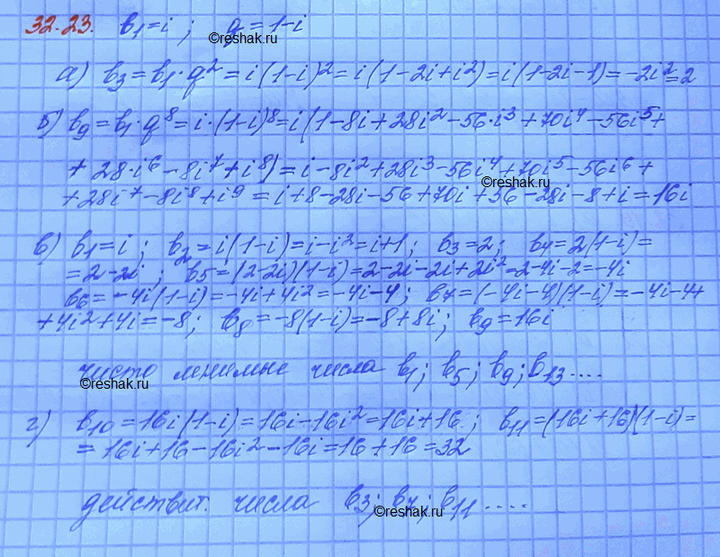 32.23. b₁=i ; q=1-i
©reshak.ru
а) b₃=b₁·q²=i(1-i)²=i(1-2i+i²)=i(1-2i-1)=-2i²=2
б) b₉=b₁·q⁸=i·(1-i)⁸=i(1-8i+28i²-56·i³+70i⁴-56i⁵+
+28·i⁶-8i⁷+i⁸)=i-8i²+28i³-56i⁴+70i⁵-56i⁶+
©reshak.ru
+28i⁷-8i⁸+i⁹=i+8-28i-56+70i+56-28i-8+i=16i
в) b₁=i ; b₂=i(1-i)=i-i²=i+1; b₃=2; b₄=2(1-i)=
=2-2i ; b₅=(2-2i)(1-i)=2-2i-2i+2i²=2-4i-2=-4i
b₆=-4i(1-i)=-4i+4i²=-4i-4; b₇=(-4i-4)(1-i)=-4i-4+
+4i²+4i=-8; b₈=-8(1-i)=-8+8i; b₉=16i
чисто мнимые числа b₁; b₅; b₉; b₁₃....
©reshak.ru
г) b₁₀=16i(1-i)=16i-16i²=16i+16 ; b₁₁=(16i+16)(1-i)=
©reshak.ru
=16i+16-16i²-16i=16+16=32
действит. числа b₃; b₇; b₁₁....
©reshak.ru